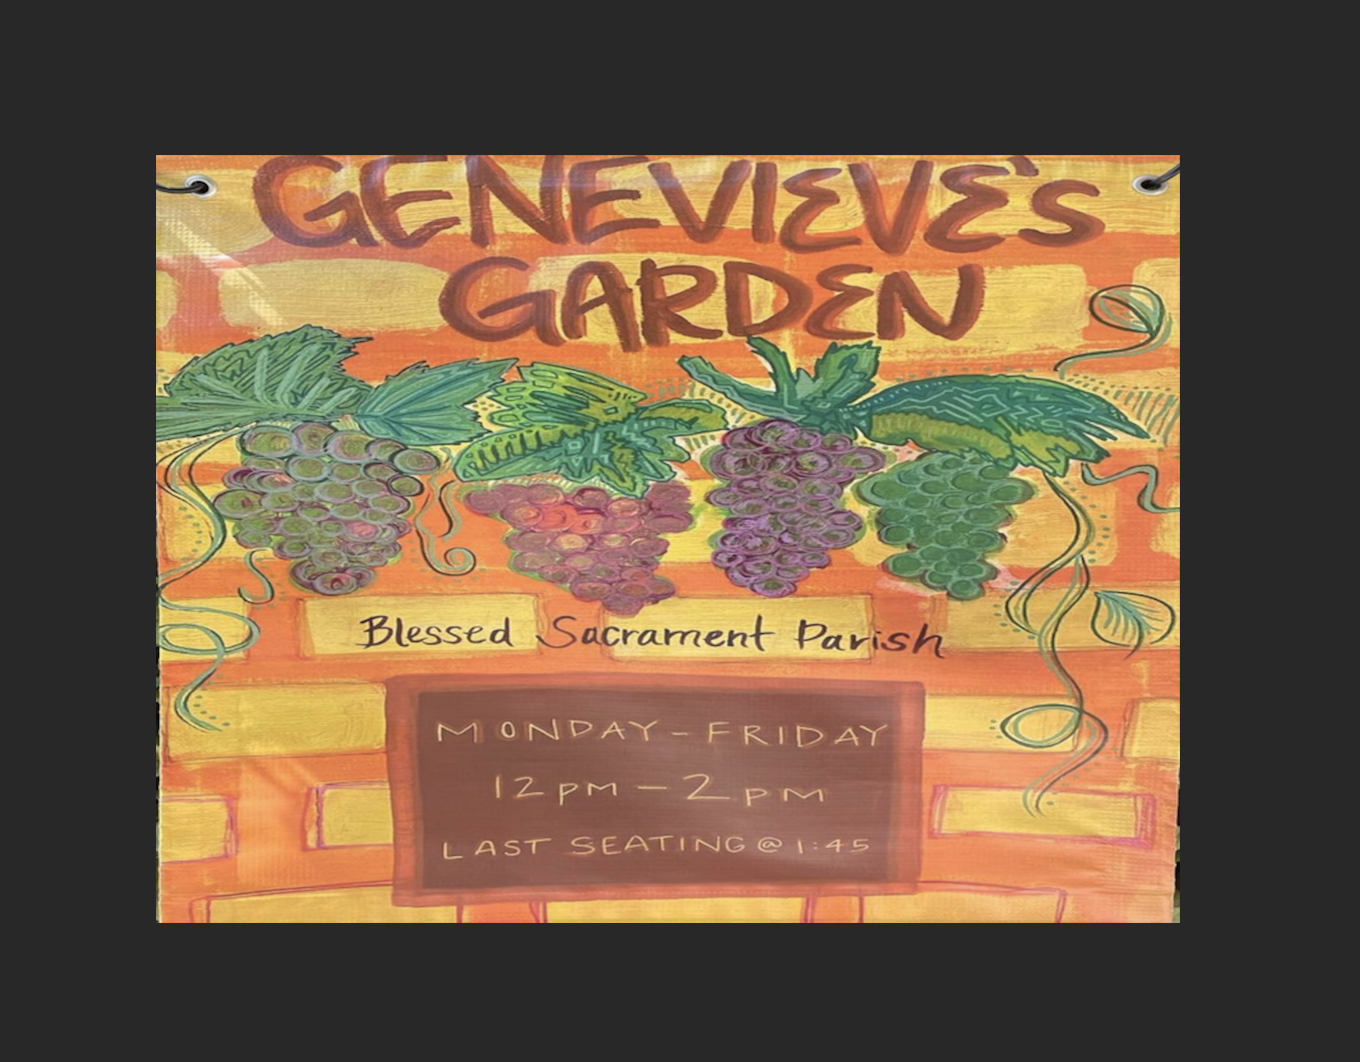 GENEVIEVE'S
GARDEN
Blessed Sacrament Parish
MONDAY - FRIDAY
12pm - 2pm
LAST SEATING @ 1:45